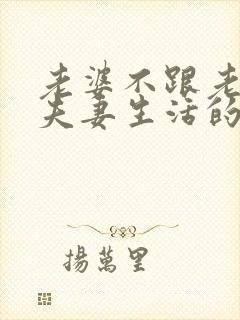 老婆不跟老
夫妻生活的
揚萬里